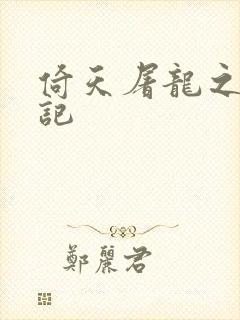 倚天屠龍之
記
鄭麗君